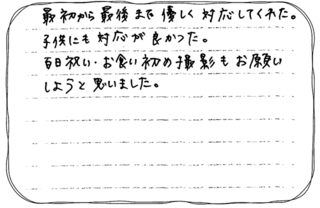 最初から最後まで優しく対応してくれた。
子供にも対応が良かった。
百日祝い・お食い初め撮影もお願い
しようと思いました。